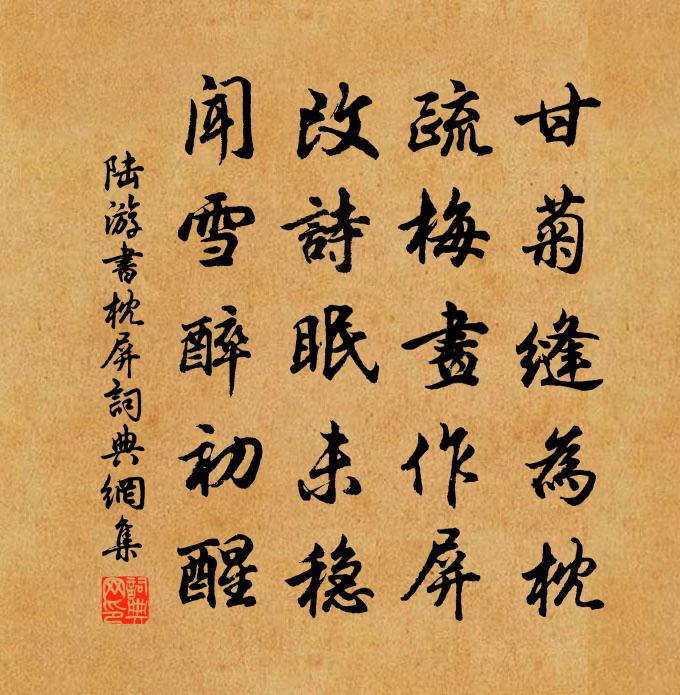 甘菊縫為枕
疏梅畫作屏
改詩眠未穩
聞雪醉初醒
陸游書枕屏詞典網集
詞典网印